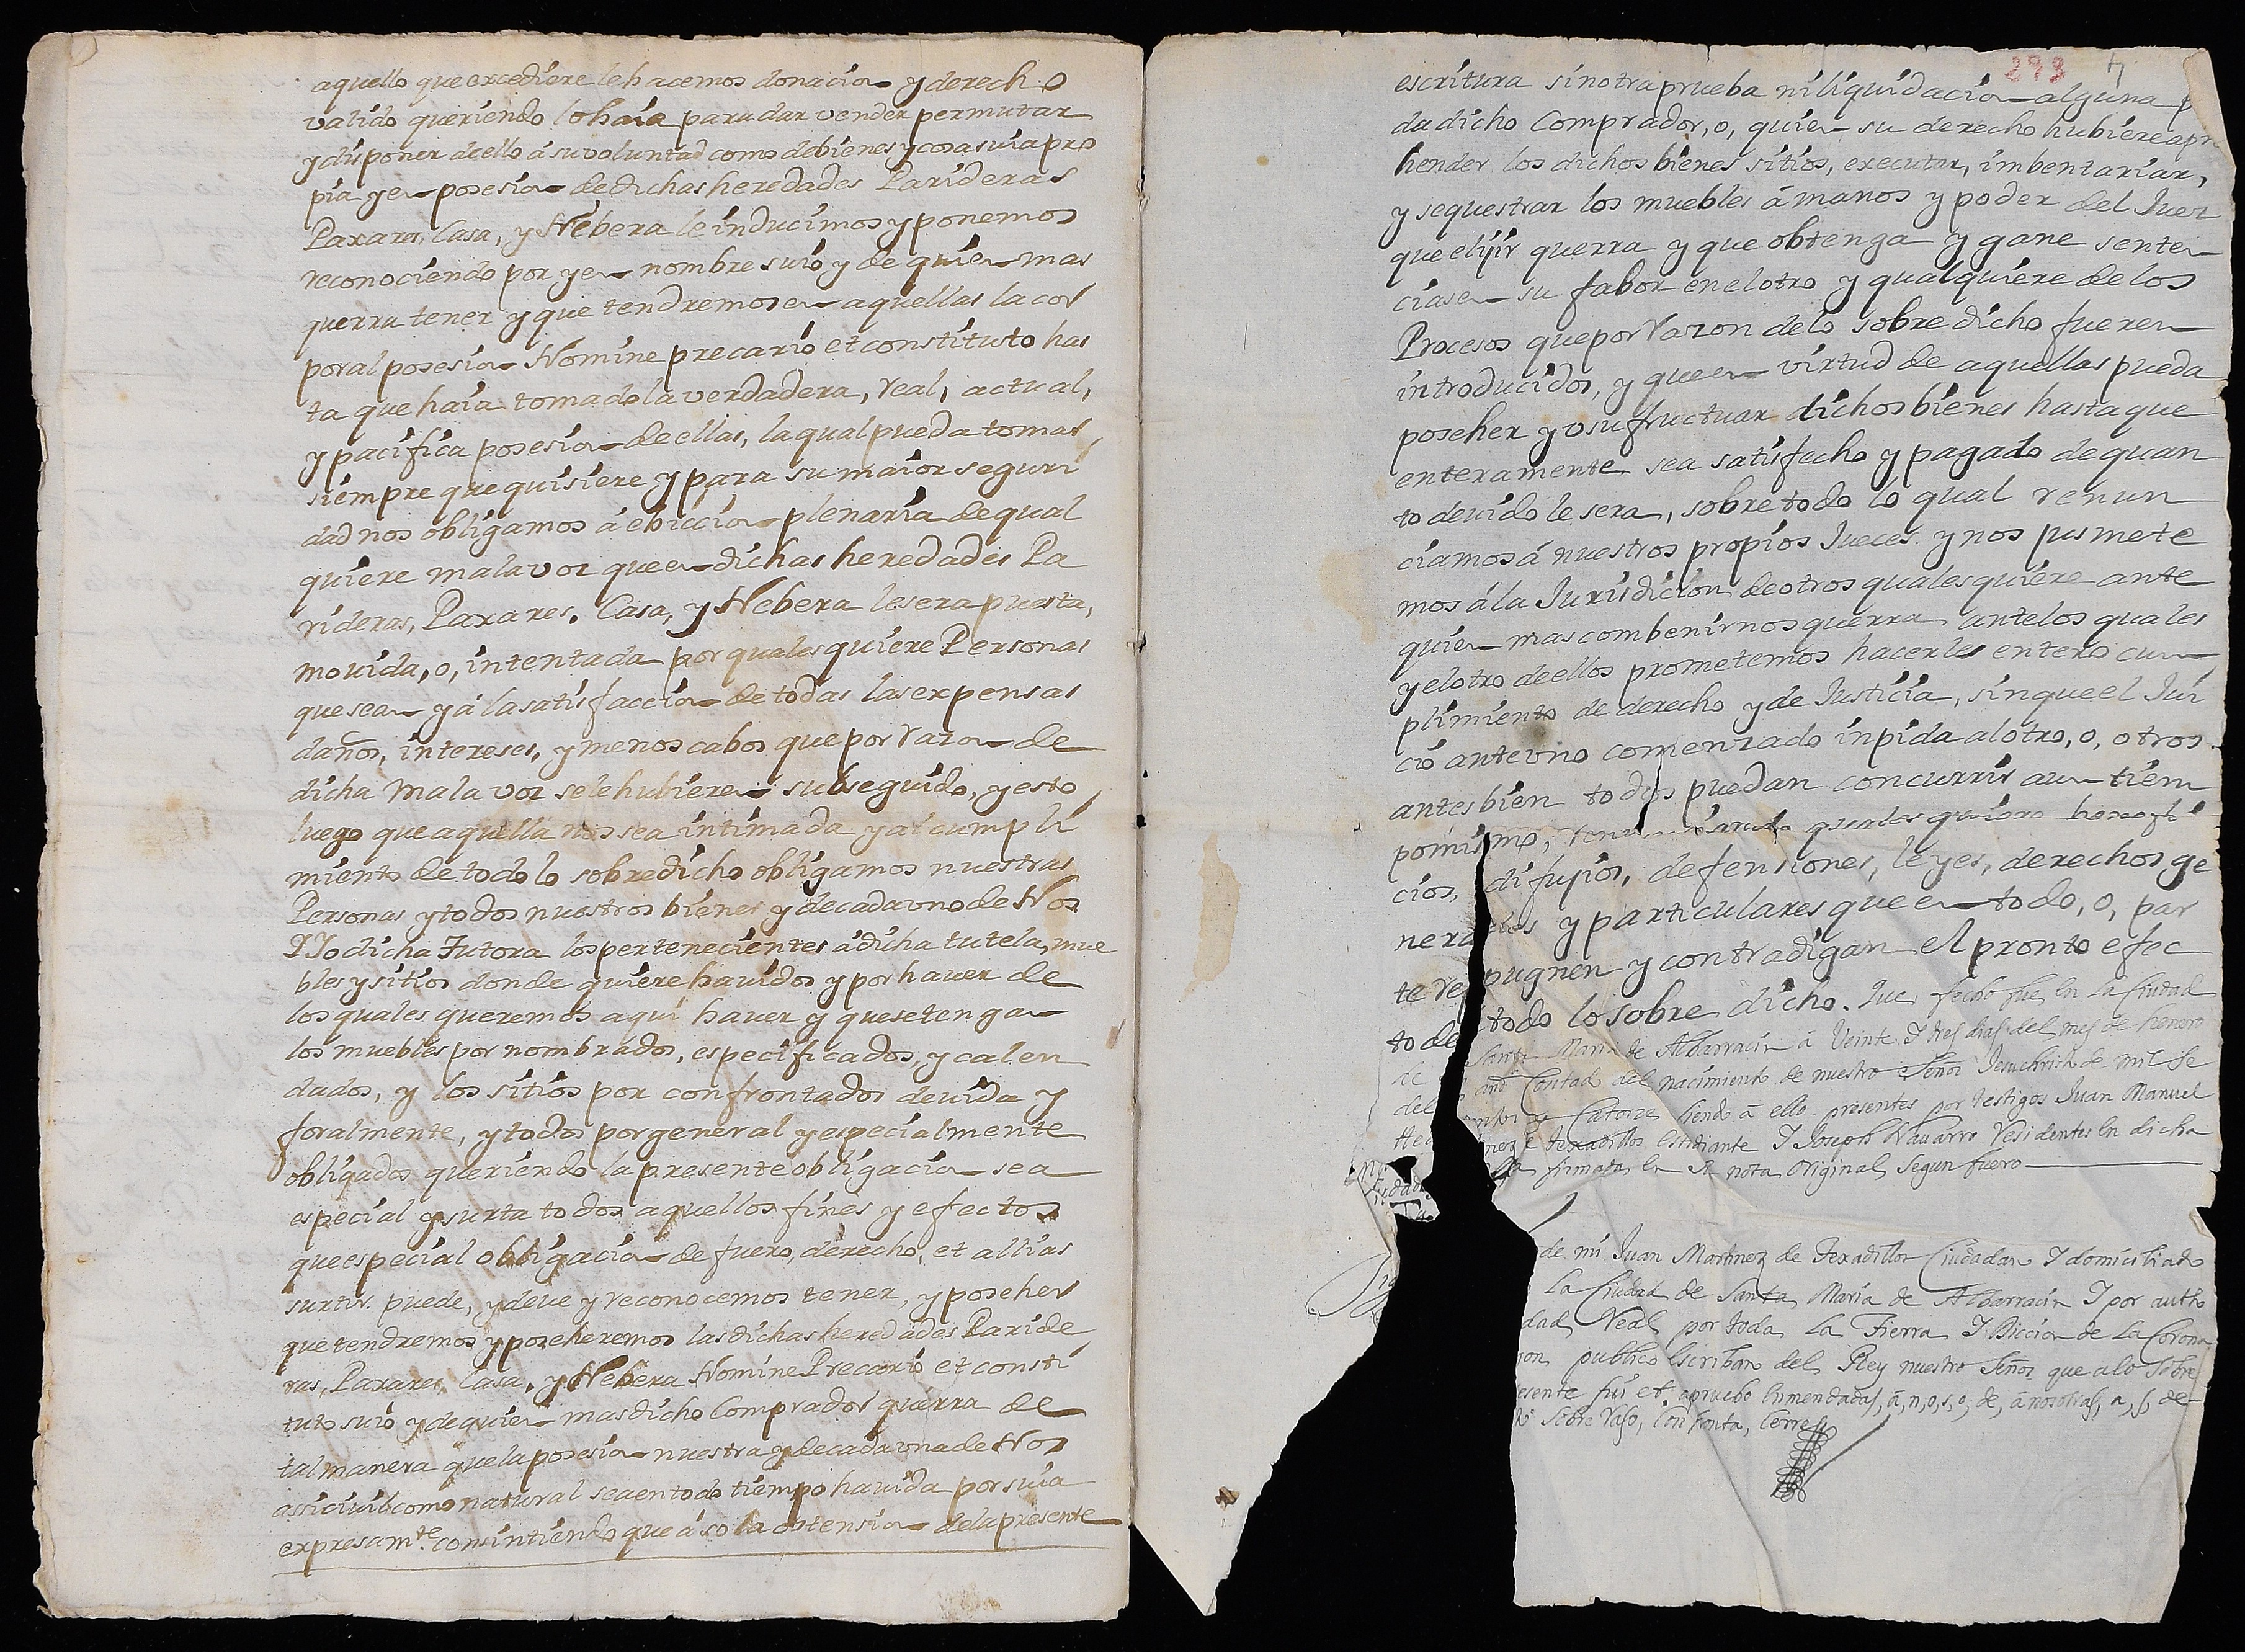 aquello que excediere le hacemos donacion y derecho
valido queriendo lo haia para dar vender permutar
y disponer de ello á su voluntad como de bienes y cosa suia pro
pia y en posesion de dichas heredades Parideras
Paxares, Casa, y Nebera le inducimos y ponemos
reconociendo por y en nombre suio y de quien mas
querra tener y que tendremos en aquellas la cor
poral posesion Nomine precario et constituto has
ta que haia tomado la verdadera, real, actual,
y pacifica posesion de ellas, la qual pueda tomar
siempre que quisiere y para su maior seguri
dad nos obligamos á ebiccion plenaria de qual
quiere mala voz que en dichas heredades Pa
rideras, Paxares, Casa, y Nebera le sera puesta,
mouida, o, intentada por quales quiere Personas
que sean y á la satisfaccion de todas las expensas
daños, intereses, y menos cabos que por razon de
dicha mala voz se le hubieren subseguido, y esto
luego que aquella nos sea intimada y al cumpli
miento de todo lo sobredicho obligamos nuestras
Personas y todos nuestros bienes y de cada uno de Nos
Y Yo dicha Tutora los pertenecientes á dicha tutela, mue
bles y sitios donde quiere hauidos y por hauer de
los quales queremos aqui hauer y que se tengan
los muebles por nombrados, especificados, y calen
dados, y los sitios por confrontados deuida y
foralmente, y todos por general y especialmente
obligados queriendo la presente obligacion sea
especial y surta todos aquellos fines y efectos
que especial obligacion de fuero, derecho, et allias
surtir puede, y deue y reconocemos tener, y poseher
que tendremos y poseheremos las dichas heredades Paride
ras, Paxares, Casa, y Nebera Nomine Precario et consti
tuto suio y de quien mas dicho Comprador querra de
tal manera que la posesion nuestra y de cada una de Nos
assi ciuil como natural sea en todo tiempo hauida por suia
expresam.te consintiendo que á sola ostension de la presente
293 7
escritura sin otra prueba ni liquidacion alguna p
da dicho Comprador, o, quien su derecho hubiere apre
hender los dichos bienes sitios, executar, imbentariar,
y sequestrar los muebles á manos y poder del Juez
que elijir querra y que obtenga y gane senten
cias en su fabor en el otro y qualquiere de los
Procesos que por razon de lo sobre dicho fueren
introducidos, y que en virtud de aquellas pueda
poseher y usufructuar dichos bienes hasta que
enteramente sea satisfecho y pagado de quan
to deuido le sera, sobre todo lo qual renun
ciamos á nuestros propios Jueces y nos jusmete
mos á la Jurisdicion de otros quales quiere ante
quien mas combenirnos querra ante los quales
y el otro de ellos prometemos hacerles entero cum
plimiento de derecho y de Justicia, sin que el Jui
cio ante uno comenzado inpida al otro, o, otros
antes bien todos puedan concurrir a un tiem
po mismo, quales quiere benefi
cios, difujios, defensiones, leyes, derechos ge
nerales y particulares que en todo, o, par
te repugnen y contradigan el pronto efec
to de todo lo sobre dicho. Que fecho fue en La Ciudad
de Santa Maria de Albarracin á Veinte Y tres dias del mes de henero
del año Contado del nacimiento de nuestro Señor Jesuchristo de mil Se
Catorze siendo á ello presentes por testigos Juan Manuel
de Texadillos estudiante Y Joseph Nauarro Residentes en dicha
firmada en su nota Original Segun fuero
de mi Juan Martinez de Texadillos Ciudadano Y domiciliado
La Ciudad de Santa Maria de Albarracin Y por autho
dad Real por toda La Tierra Y Diccion de La Corona
gon publico Escribano del Rey nuestro Señor que a lo Sobre
esente fui et apruebo Enmendadas, á, n, o, s, o, de, á nosotras, a, s, de
Sobre Raso, Confronta, Cerre